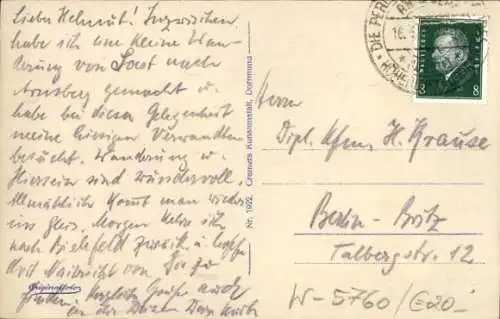 Lieber Helmut! Inzwischen
habe ich eine kleine Wan-
derung von Soest nach
Arnsberg gemacht u.
habe bei dieser Gelegenheit
meine hiesigen Verwandten
besucht. Wanderung u.
Hiersein sind wundervoll.
Allmählich kommt man wieder
ins Gleis. Morgen kehre ich
nach Bielefeld zurück u. hoffe
dort Nachricht von Dir zu
finden. Herzliche Grüße auch
an die
Originalfoto
Nr. 1922. Cramers Kunstanstalt, Dortmund
DIE PER
16.
8 8
Herrn
Dipl. Kfm. H. Krause
Berlin-Britz
Talbergstr. 12
W-5760/€20.-